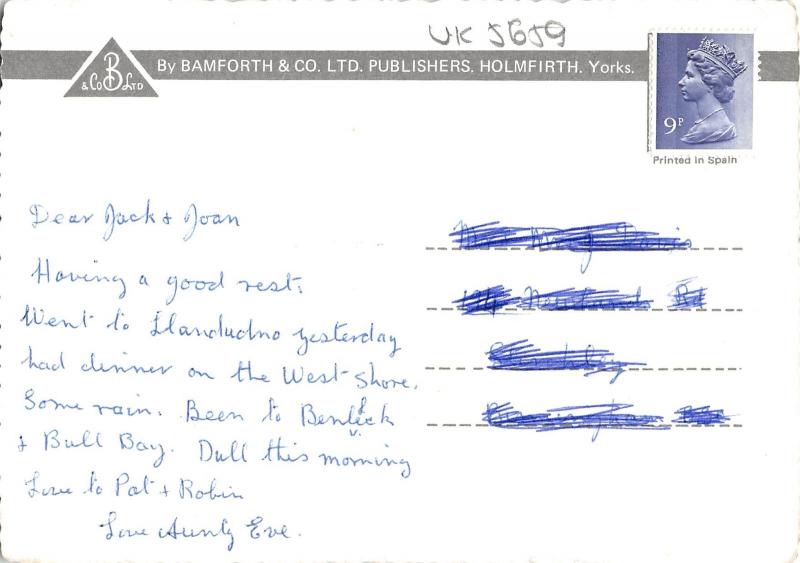 UK 5659
B
& Co LTD
By BAMFORTH & CO. LTD. PUBLISHERS. HOLMFIRTH. Yorks.
9P
Printed in Spain
Dear Jack & Joan
Having a good rest.
Went to Llandudno yesterday
had dinner on the West-Shore.
Some rain. Been to Benlleck
& Bull Bay. Dull this morning
Love to Pat & Robin
Love Aunty Eve.
Rd